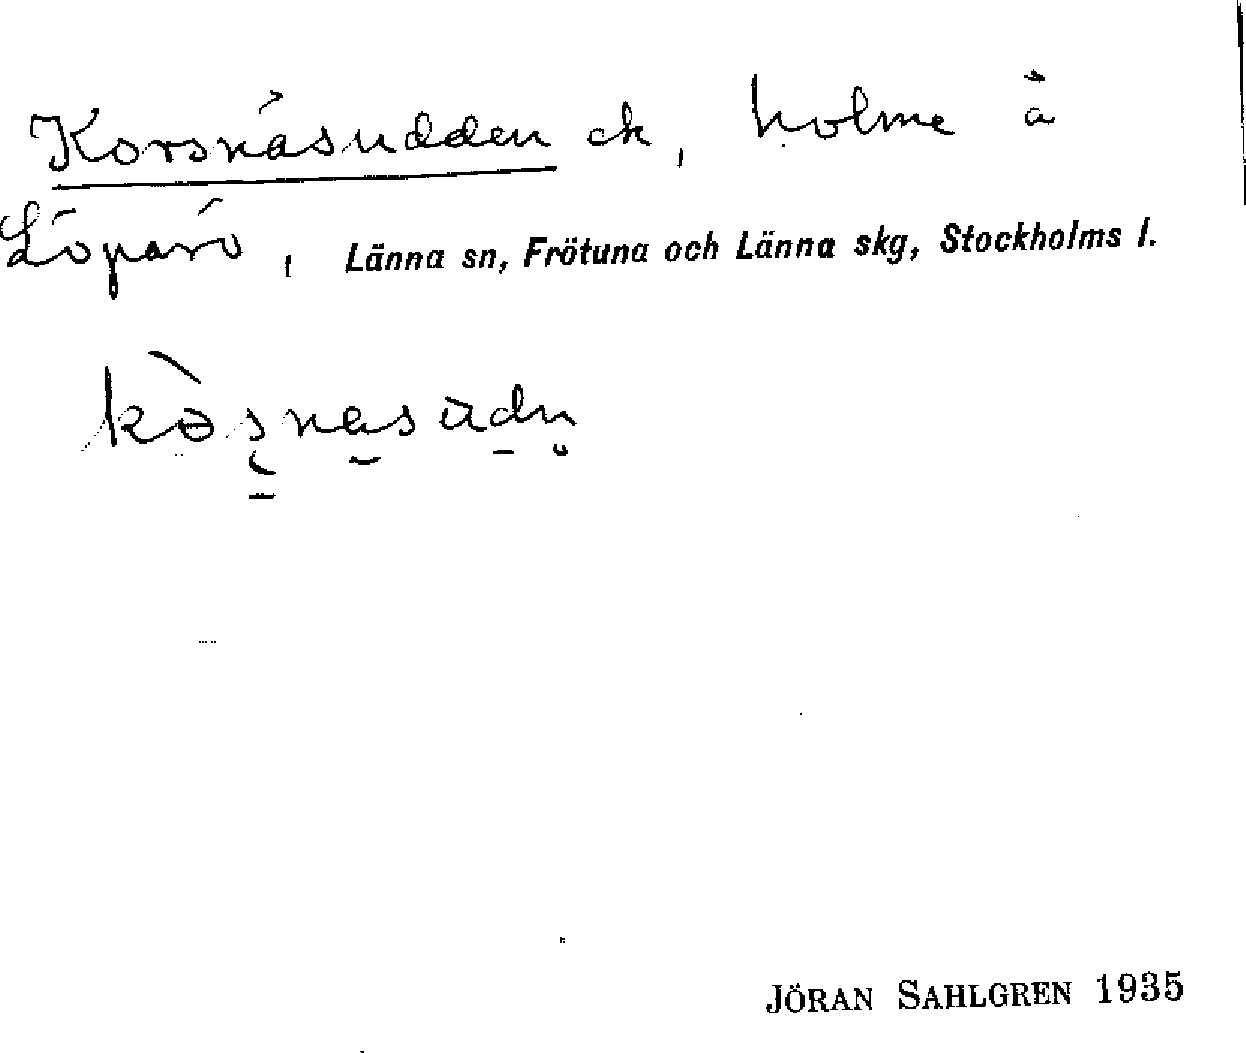 Korsnäsudden ek, holme å
Löparö, Länna sn, Frötuna och Länna skg, Stockholms l.
JÖRAN SAHLGREN 1935